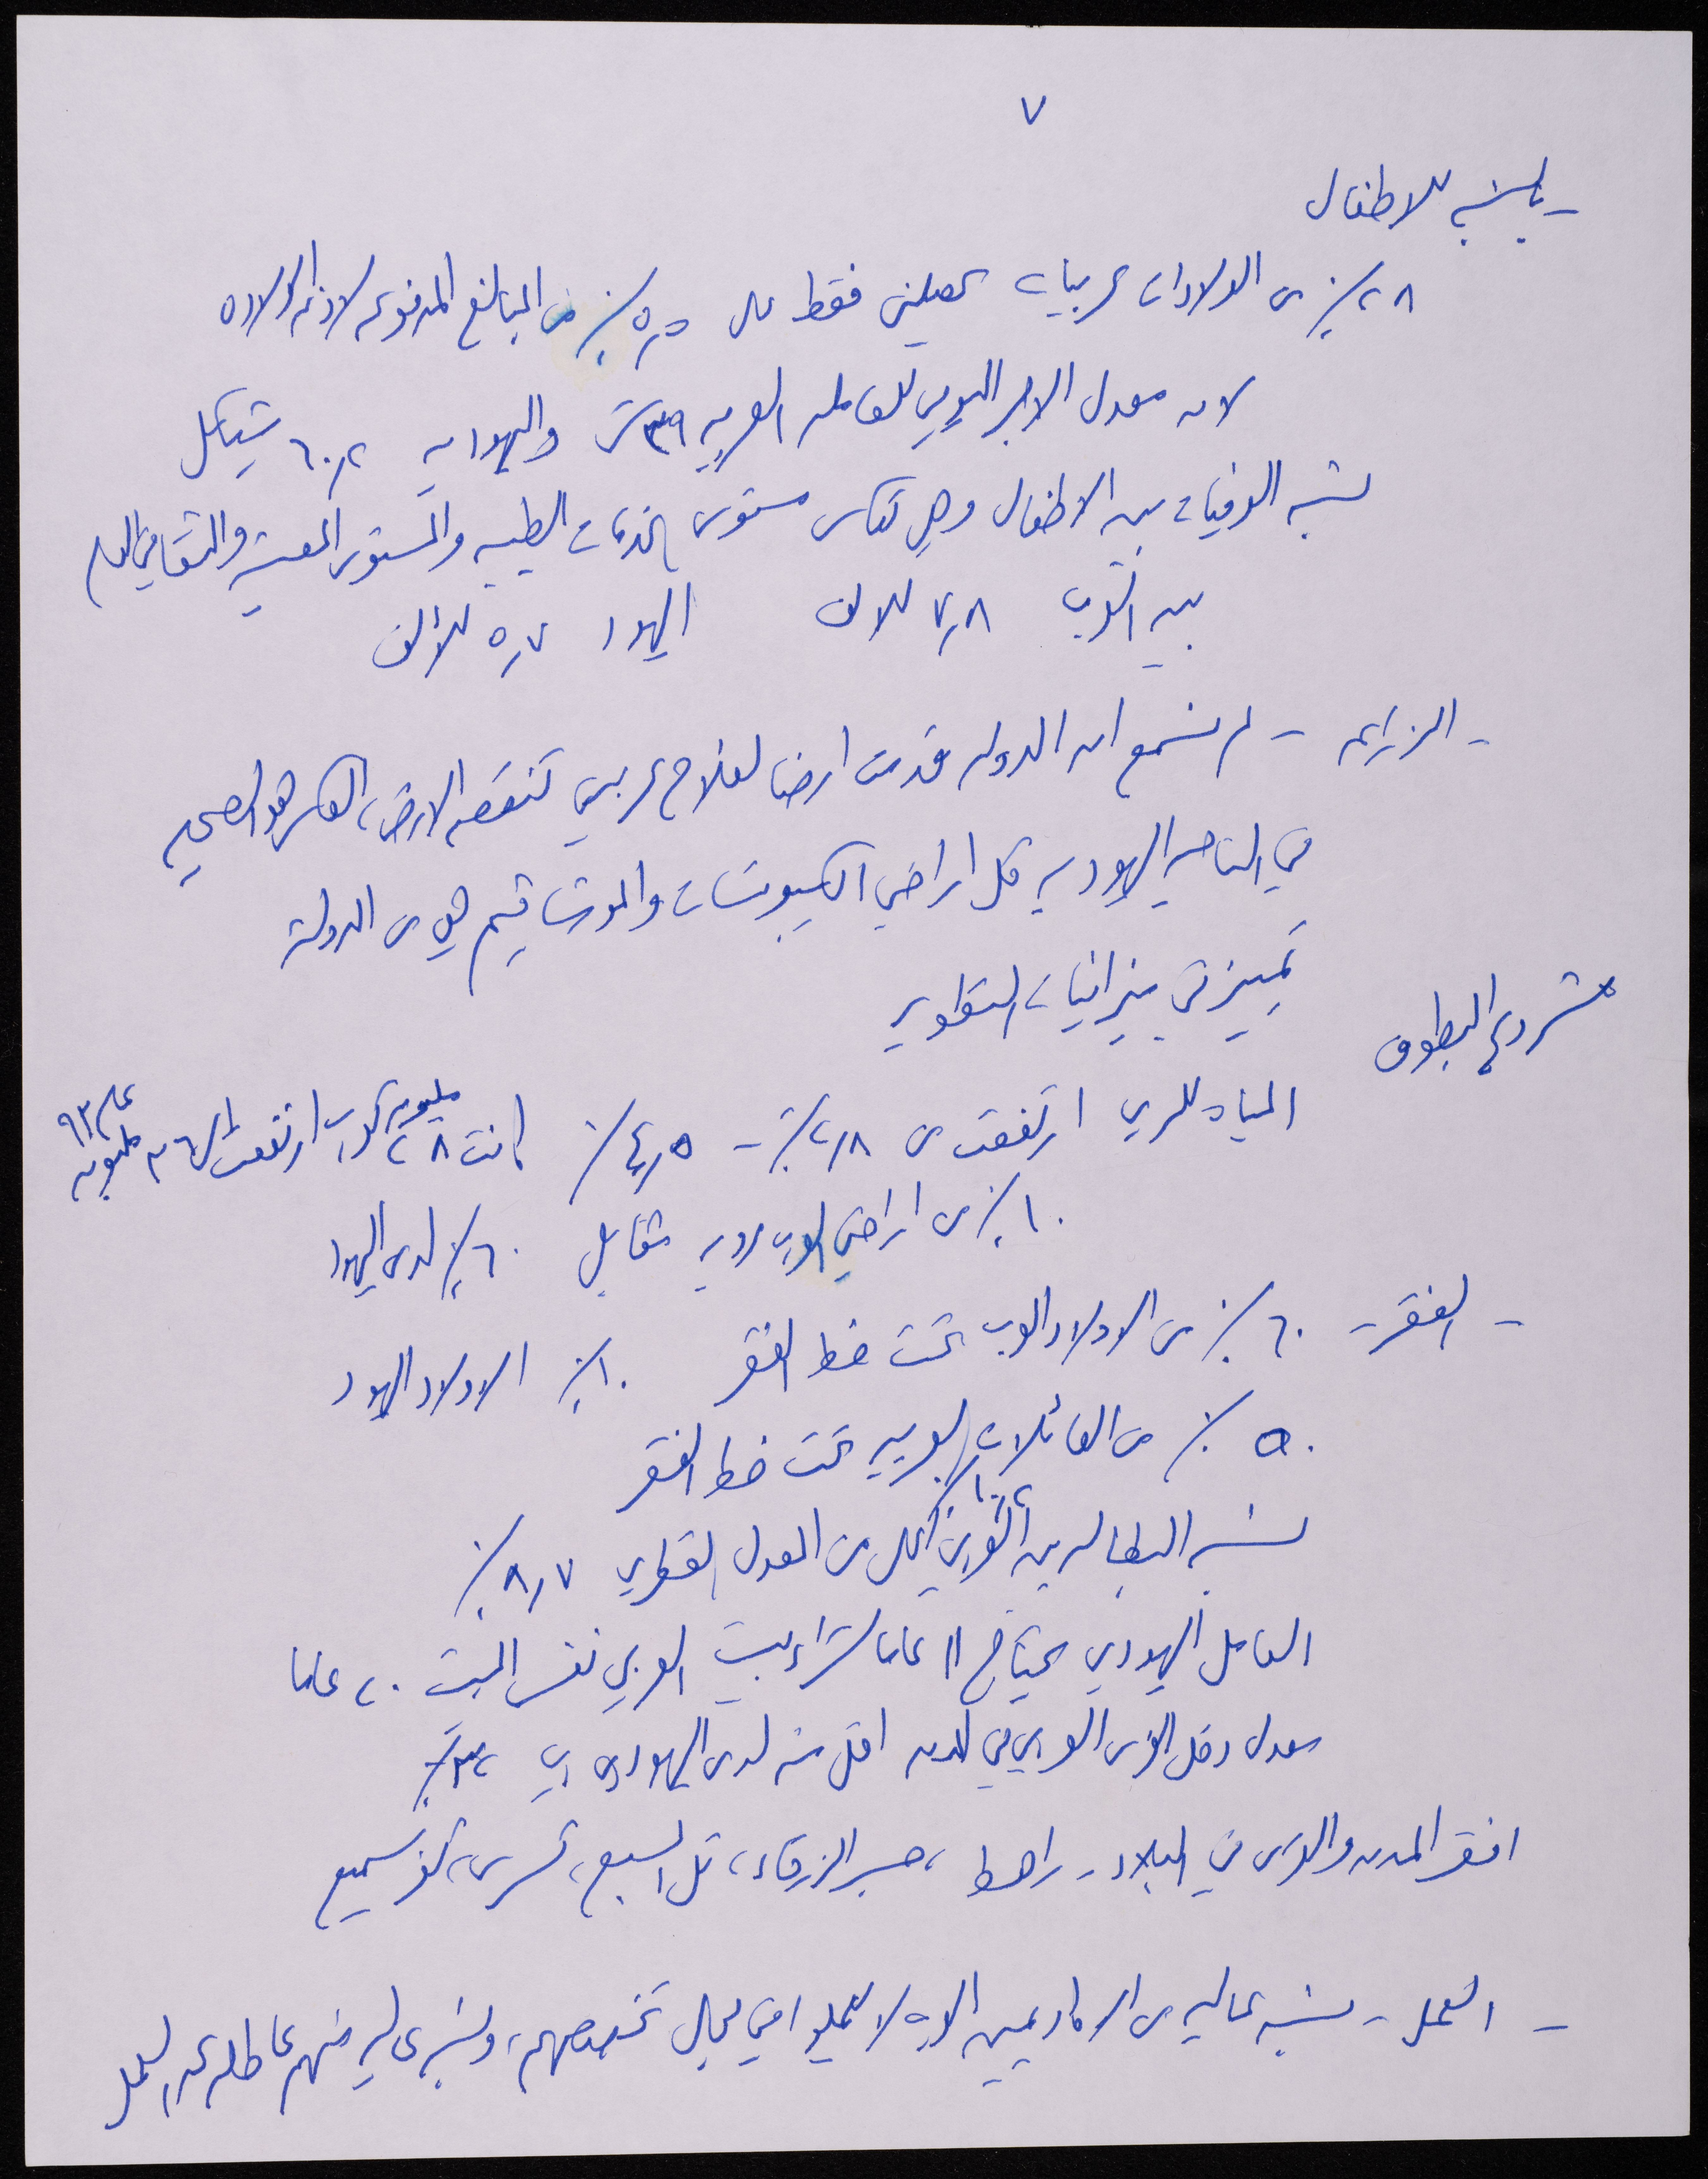 ٧
- بالنسبه للاطفال
٢٨٪ من الولادات عربيات يحصلن فقط على ٥٫٥٪ من المبالغ المدفوعه لاذنه الولاده
لان معدل الاجر اليومي للعامله العربيه ٣٩ ش واليهوديه ٦٠٫٢ شيكل
نسبه الوفيات بين الاطفال وهي تعكس مستوى الخدمات الطبيه والمستوى المعيشي والثقافي العام
بين العرب ٧٫٨ للالف اليهود ٥٫٧ للألف
- الزراعه - لم نسمع ان الدوله قدمت ارضا لفلاح عربي تنقصه الارض، العكس هو الصحيح
في الناحيه اليهوديه كل اراضي الكيبوتسات والموشافيم هي من الدولة
تمييز في ميزانيات التطوير
مشروع البطوف
المياه للري ارتفعت من ٢٫٨٪ - ٤٫٥٪ كانت ٢٨ مليون كوب ارتفعت الى مليون عام ٩٣
١٠٪ من اراضي العرب مرويه مقابل ٦٠٪ لدى اليهود
- الفقر - ٦٠٪ من الاولاد العرب تحت خط الفقر ١٠٪ الاولاد اليهود
٥٠٪ من العائلات العربيه تحت خط الفقر
نسبه البطاله بين العرب اعلى من المعدل القطري ٨٫٧٪
العامل اليهودي يحتاج ١١ عاما لشراء بيت العربي نفس البيت ٢٠ عاما
معدل دخل الفرد العربي في المدن اقل منه لدى اليهودي ٣٢٪
افقر المدن والقرى في البلاد - راهط، جسر الزرقاء، تل السبع، كسرى، كفر سميع
- العمل - نسبه عاليه من الاكاديميين العرب لا يعملوا في مجال تخصصهم، ونسبه عاليه منهم عاطله عن العمل